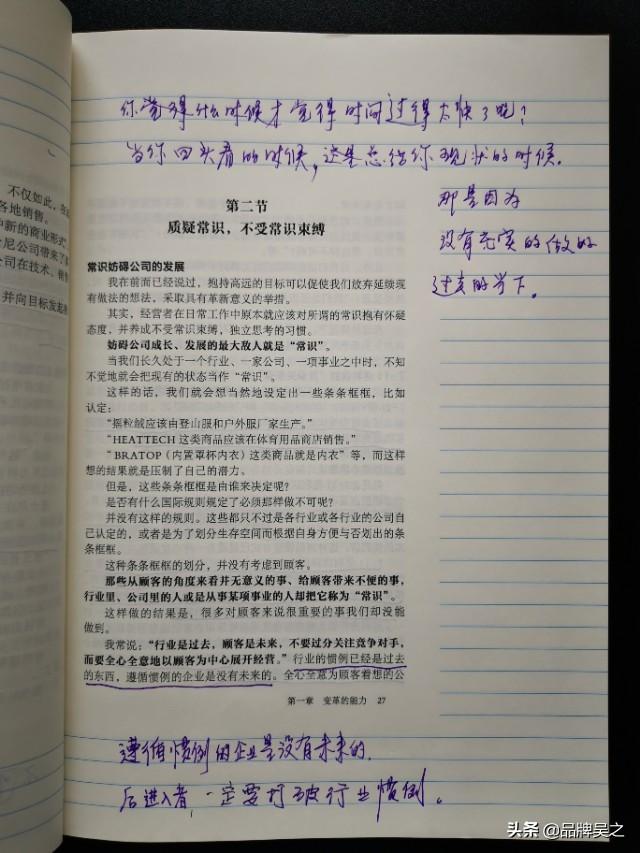 你觉得什么时候才觉得时间过得太快了呢？
当你回头看的时候，这是总结你现状的时候.
那是因为
没有充实的做的
过去的当下。
不仅如此，
各地销售。
中新的商业形式
尼公司带来了
公司在技术、
并向目标发起
第二节
质疑常识，不受常识束缚
常识妨碍公司的发展
我在前面已经说过，抱持高远的目标可以促使我们放弃延续现
有做法的想法，采取具有革新意义的举措。
其实，经营者在日常工作中原本就应该对所谓的常识抱有怀疑
态度，并养成不受常识束缚，独立思考的习惯。
妨碍公司成长、发展的最大敌人就是“常识”。
当我们长久处于一个行业、一家公司、一项事业之中时，不知
不觉地就会把现有的状态当作“常识”。
这样的话，我们就会想当然地设定出一些条条框框，比如
认定：
“摇粒绒应该由登山服和户外服厂家生产。”
“HEATTECH 这类商品应该在体育用品商店销售。”
“BRATOP（内置罩杯内衣）这类商品就是内衣”等，而这样
想的结果就是压制了自己的潜力。
但是，这些条条框框是由谁来决定呢？
是否有什么国际规则规定了必须那样做不可呢？
并没有这样的规则。这些都只不过是各行业或各行业的公司自
己认定的，或者是为了划分生存空间而根据自身方便与否划出的条
条框框。
这种条条框框的划分，并没有考虑到顾客。
那些从顾客的角度来看并无意义的事、给顾客带来不便的事，
行业里、公司里的人或是从事某项事业的人却把它称为“常识”。
这样做的结果是，很多对顾客来说很重要的事我们却没能
做到。
我常说：“行业是过去，顾客是未来，不要过分关注竞争对手，
而要全心全意地以顾客为中心展开经营。”行业的惯例已经是过去
的东西，遵循惯例的企业是没有未来的。全心全意为顾客着想的公
第一章 变革的能力 27
遵循惯例的企业是没有未来的.
后进入者，一定要打破行业惯例。
头条@品牌吴之